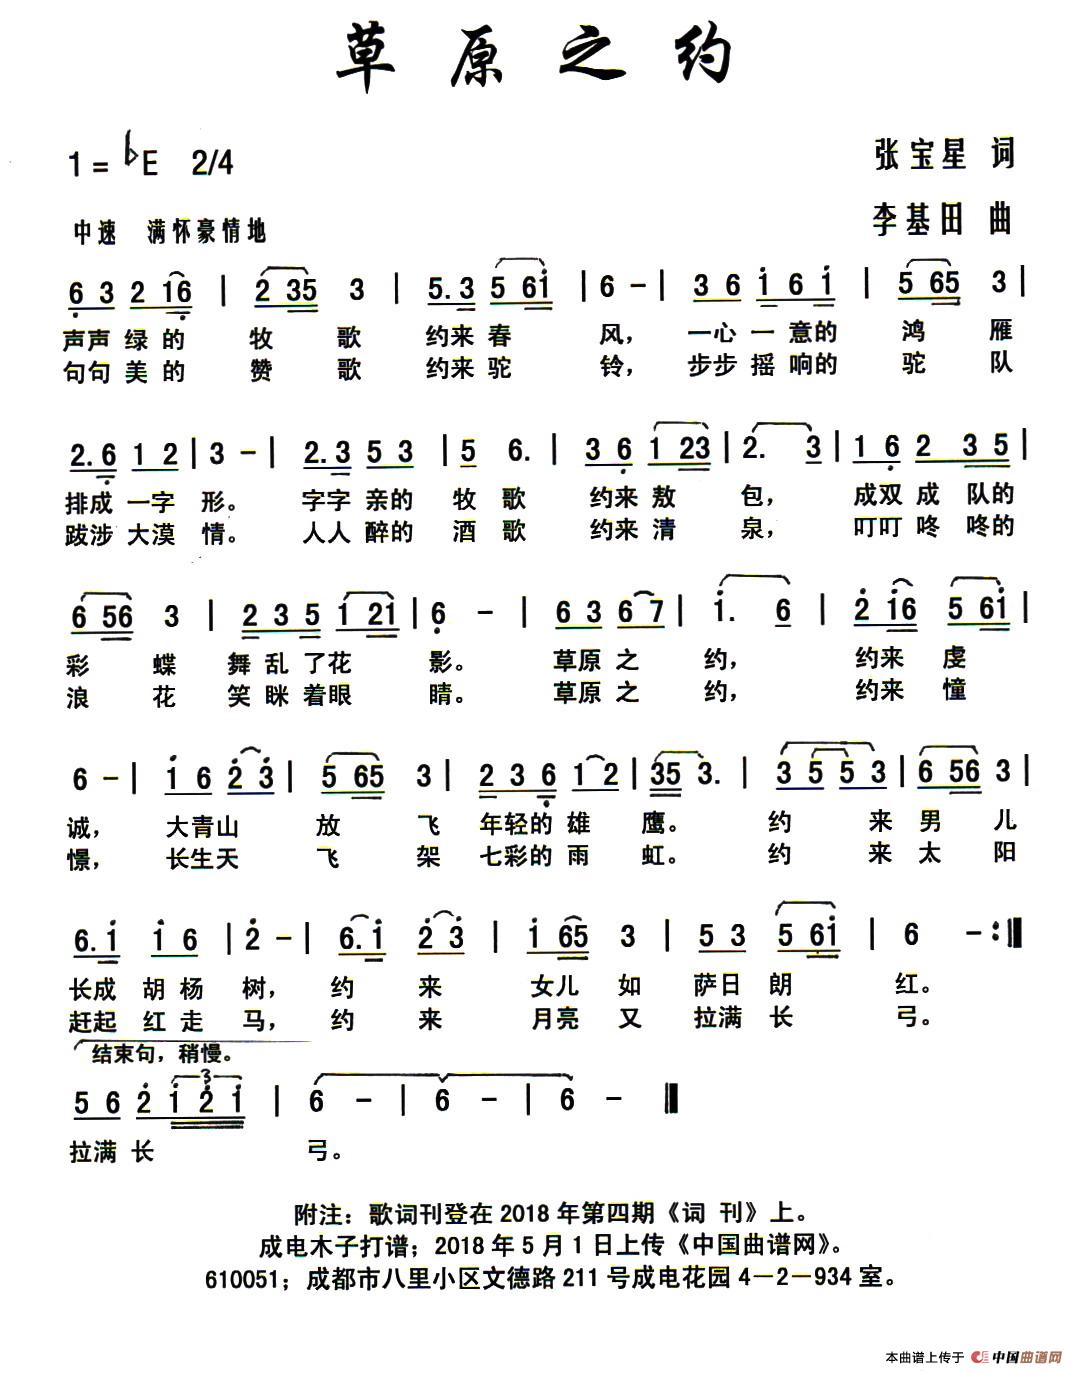 草原之约
1=♭E 2/4
张宝星 词
中速 满怀豪情地
李基田 曲
6 3 2 1 6 | 2 3 5 3 | 5. 3 5 6 1 | 6 - | 3 6 1 6 1 | 5 6 5 3 |
声声 绿 的 牧 歌 约来 春 风， 一心 一 意的 鸿 雁
句句 美 的 赞 歌 约来 驼 铃， 步步 摇 响的 驼 队
2. 6 1 2 | 3 - | 2. 3 5 3 | 5 6. | 3 6 1 2 3 | 2. 3 | 1 6 2 3 5 |
排成 一字 形。 字字 亲的 牧 歌 约来 敖 包， 成双 成 队的
跋涉 大漠 情。 人人 醉的 酒 歌 约来 清 泉， 叮叮 咚 咚的
6 5 6 3 | 2 3 5 1 2 1 | 6 - | 6 3 6 7 | 1. 6 | 2 1 6 5 6 1 |
彩 蝶 舞 乱 了花 影。 草原 之 约， 约来 虔
浪 花 笑 眯 着眼 睛。 草原 之 约， 约来 憧
6 - | 1 6 2 3 | 5 6 5 3 | 2 3 6 1 2 | 3 5 3. | 3 5 5 3 | 6 5 6 3 |
诚， 大青山 放 飞 年轻的 雄 鹰。 约 来 男 儿
憬， 长生天 飞 架 七彩的 雨 虹。 约 来 太 阳
6. 1 1 6 | 2 - | 6. 1 2 3 | 1 6 5 3 | 5 3 5 6 1 | 6 - :‖
长成 胡 杨 树， 约 来 女儿 如 萨日 朗 红。
赶起 红 走 马， 约 来 月亮 又 拉满 长 弓。
结束句，稍慢。
3
5 6 2 1 2 1 | 6 - | 6 - | 6 - ‖
拉满 长 弓。
附注：歌词刊登在 2018 年第四期《词 刊》上。
成电木子打谱；2018 年 5 月 1 日上传《中国曲谱网》。
610051；成都市八里小区文德路 211 号成电花园 4－2－934 室。
本曲谱上传于 中国曲谱网